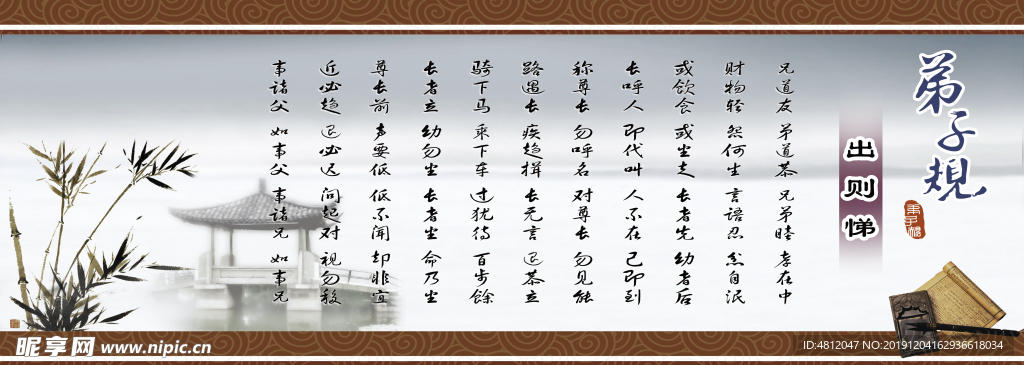 弟子规
出则悌
兄道友 弟道恭 兄弟睦 孝在中
财物轻 怨何生 言语忍 忿自泯
或饮食 或坐走 长者先 幼者后
长呼人 即代叫 人不在 己即到
称尊长 勿呼名 对尊长 勿见能
路遇长 疾趋揖 长无言 退恭立
骑下马 乘下车 过犹待 百步余
长者立 幼勿坐 长者坐 命乃坐
尊长前 声要低 低不闻 却非宜
近必趋 退必迟 问起对 视勿移
事诸父 如事父 事诸兄 如事兄
昵享网 www.nipic.cn
ID:4812047 NO:20191204162936618034